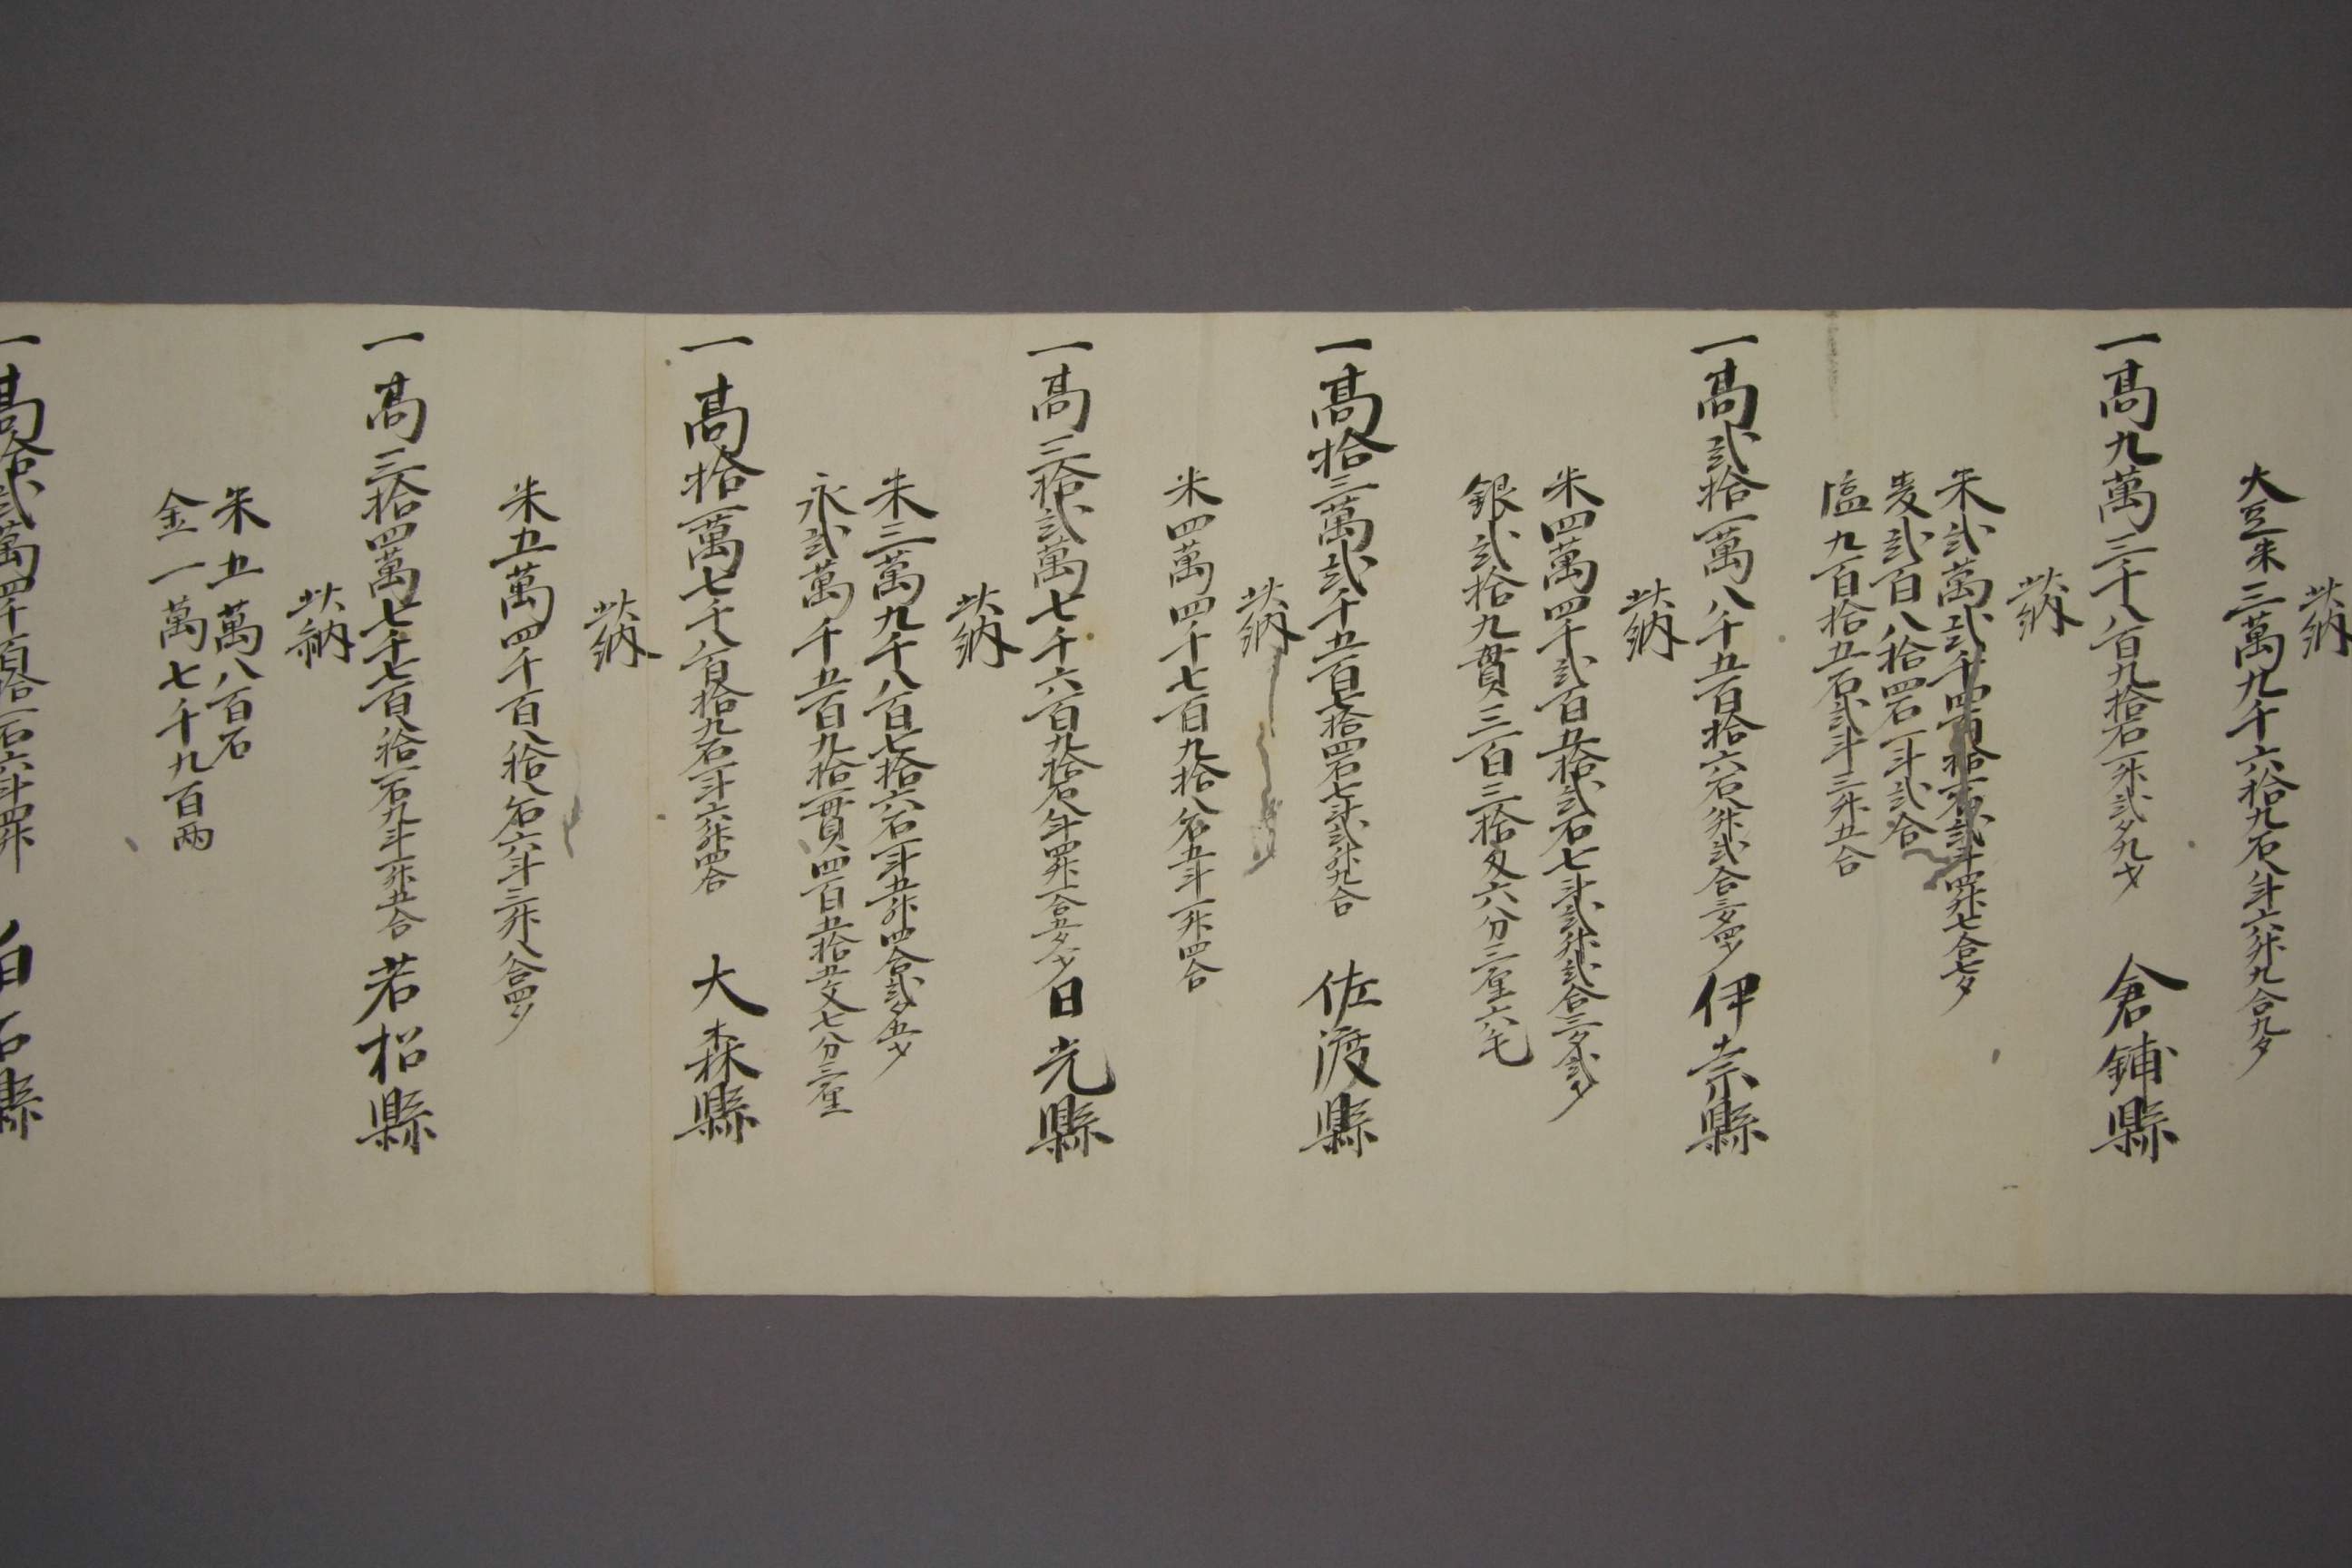 此納
大豆米三萬九千六拾九石八斗六升九合九夕
一高九萬三千八百九拾石一升弐夕九才 倉鋪縣
此納
米弐萬弐千四百拾一石弐斗四升七合七夕
麦弐百八拾四石一斗弐合
塩九百拾五石弐斗三升五合
一高弐拾一萬八千五百拾六石八升弐合三夕四才 伊奈縣
此納
米四萬四千弐百五拾弐石七斗弐升弐合三夕弐才
銀弐拾九貫三百三拾匁六分三厘六毛
一高拾三萬弐千五百七拾四石七斗弐升九合 佐渡縣
此納
米四萬四千七百九拾八石五斗一升四合
一高三拾弐萬七千六百九拾石八斗四升一合五夕一才 日光縣
此納
米三萬九千八百七拾六石一斗五升四合弐夕五才
永弐萬千五百九拾一貫四百五拾五文七分三厘
一高拾一萬七千八百拾九石一斗六升四合 大森縣
此納
米五萬四千百八拾八石六斗三升八合四夕
一高三拾四萬七千七百八拾一石九斗一升五合 若松縣
此納
米五萬八百石
金一萬七千九百両
一高拾弐萬四千百拾一石六斗四升 白石縣